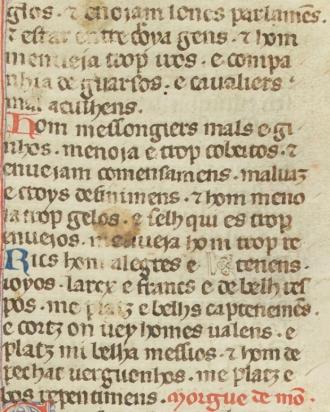 glos. ⁊ enoiam loncs parlamēs.
⁊ estar entre croya gens. ⁊ hom
men uieia trop iros. e compa
nhia de guarsos. e caualiers
mal aculhens.
Hom messongiers mals e gi
nhos. menoia e trop cobeitos. ⁊
enueiam comensamens. maluatz
e croys definimens. ⁊ hom meno
ia trop gelos. e selh qui es trop
enueios. men ueia hom trop te
Rics hom alegres e tenens.
ioyos. larcx e francs e de belh res
pos. me platz e belhs captenemēs.
e cortz on uey homes ualens. e
platz mi belha messios. ⁊ hom de
pechat uergunhos. me platz e
bos repentimens. Morgue de mō.